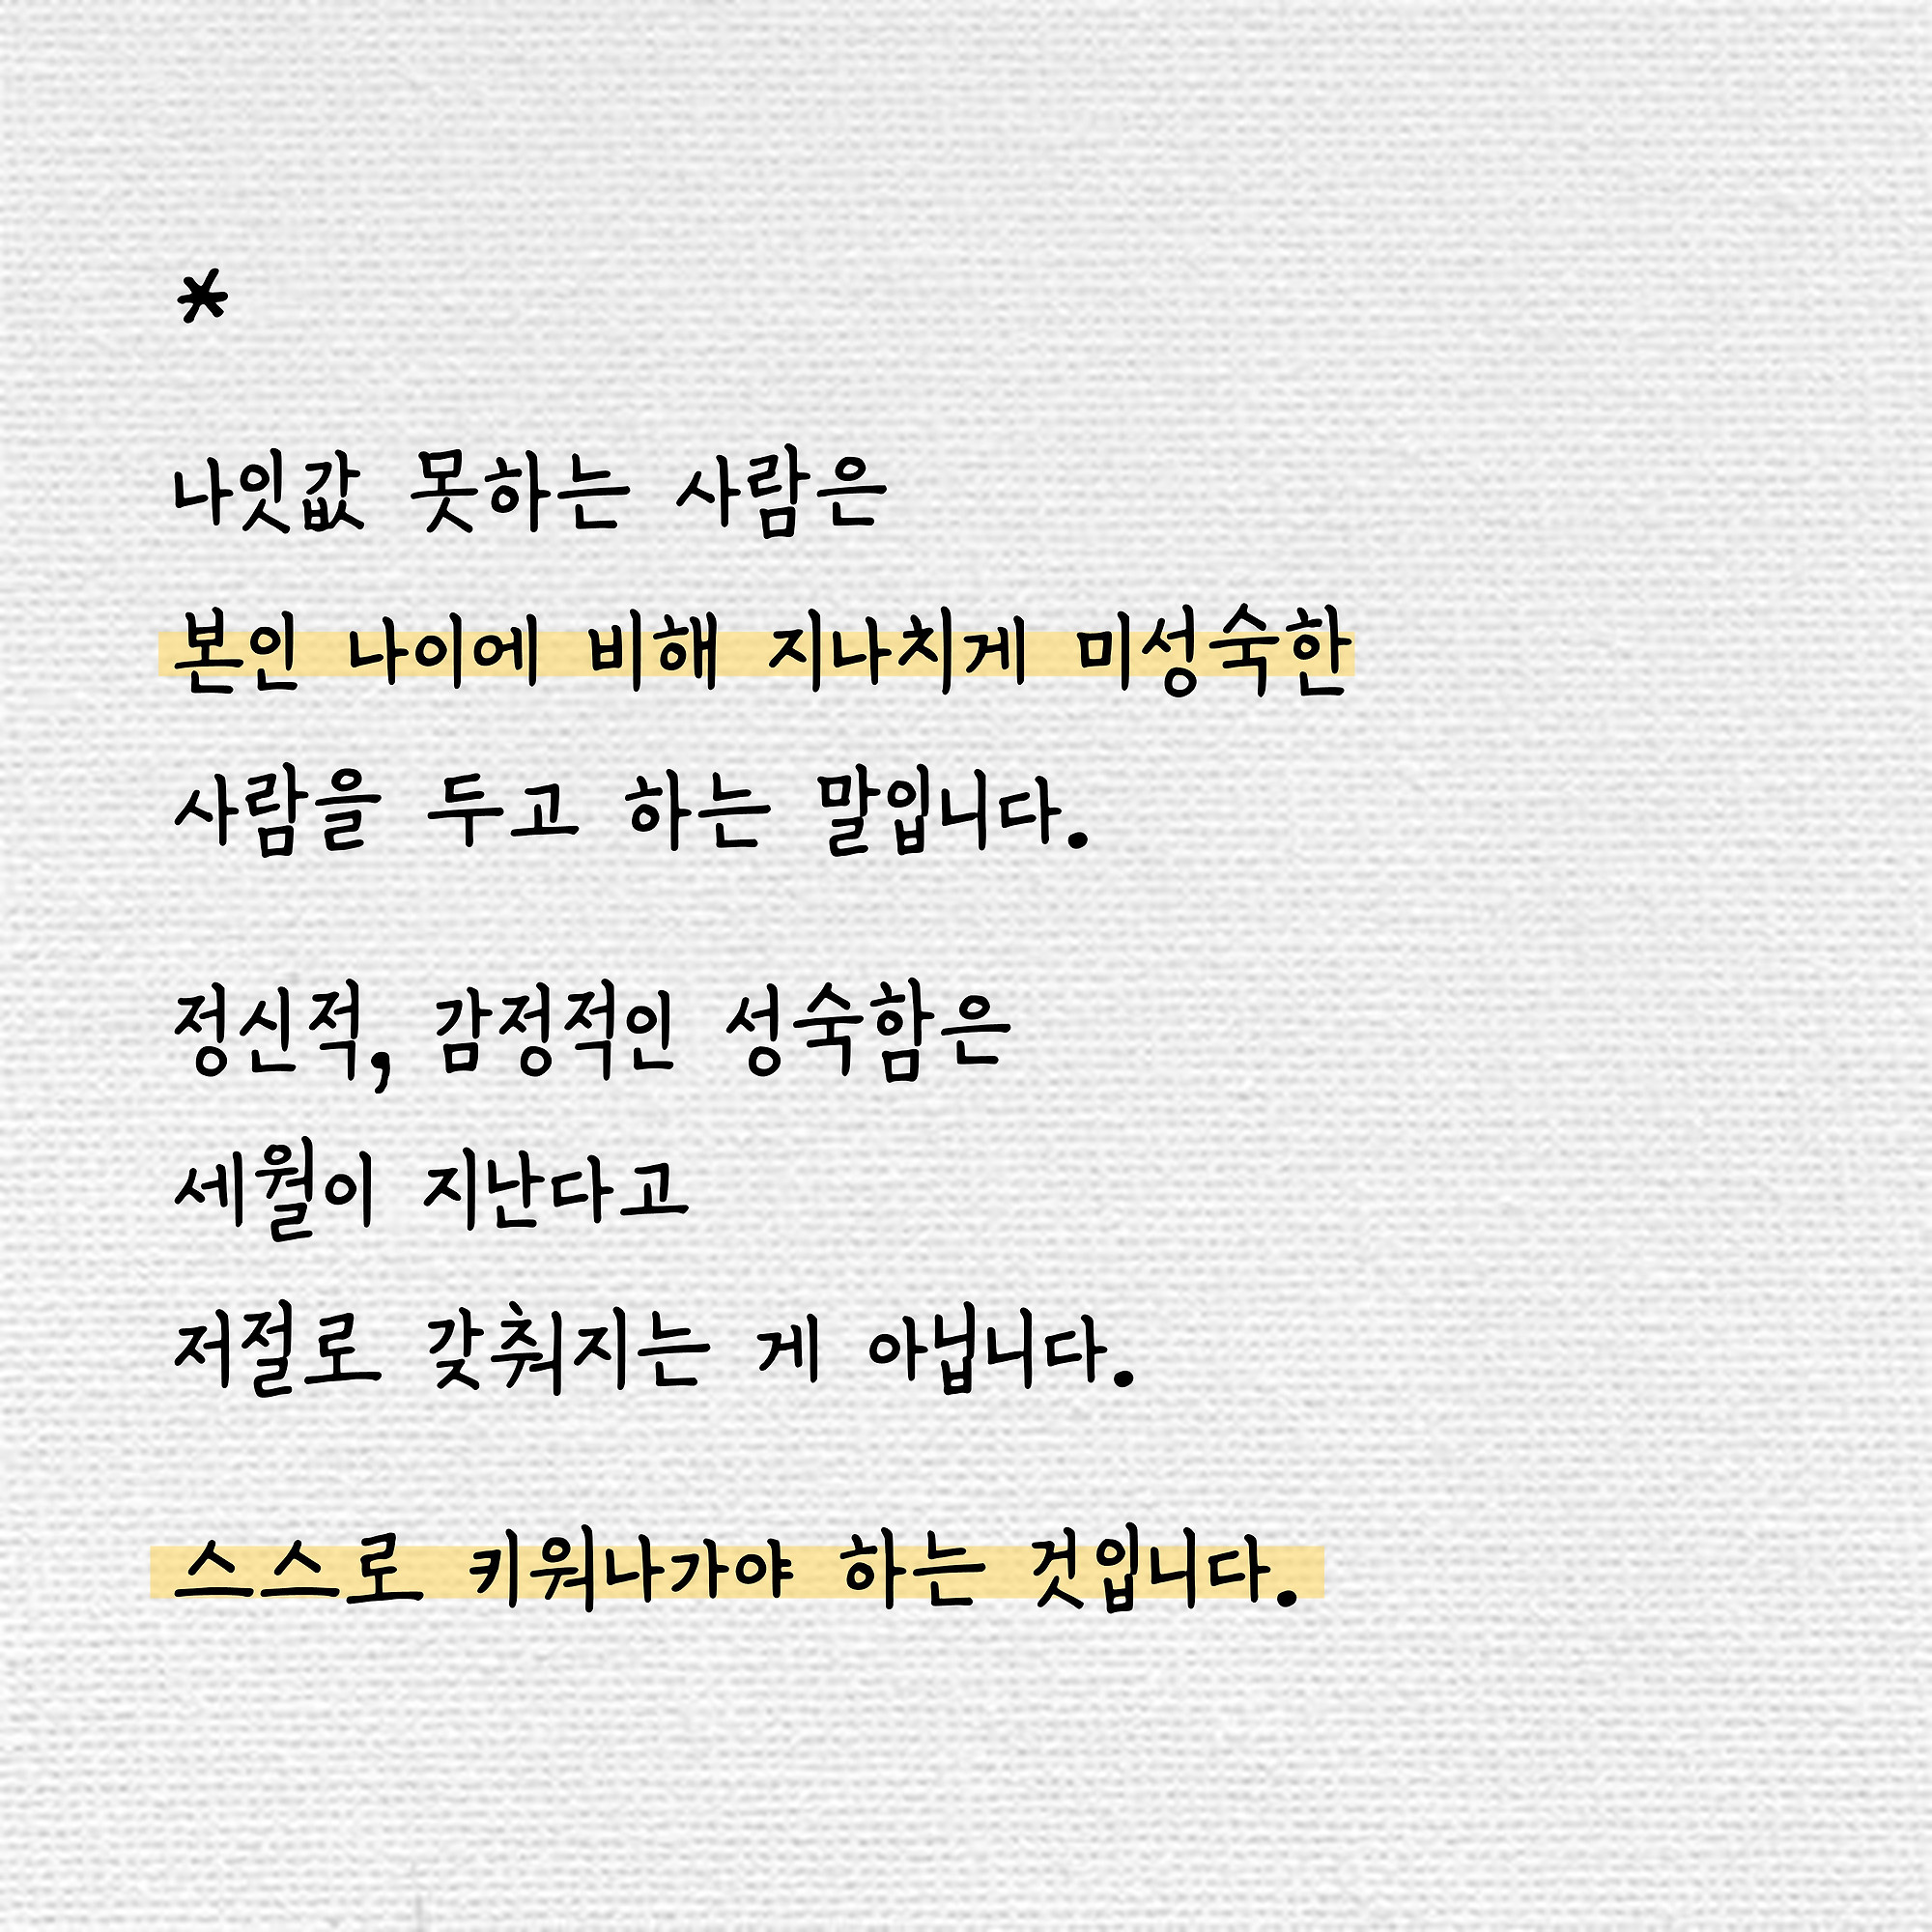 *
나잇값 못하는 사람은
본인 나이에 비해 지나치게 미성숙한
사람을 두고 하는 말입니다.
정신적, 감정적인 성숙함은
세월이 지난다고
저절로 갖춰지는 게 아닙니다.
스스로 키워나가야 하는 것입니다.